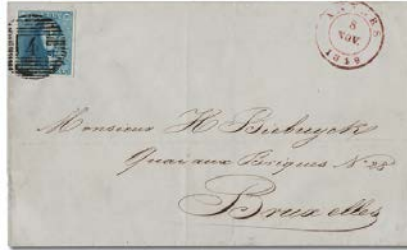 ANVERS
8
NOV.
1849
4
Monsieur H Biebuyck
Quai aux Briques N° 28
Bruxelles